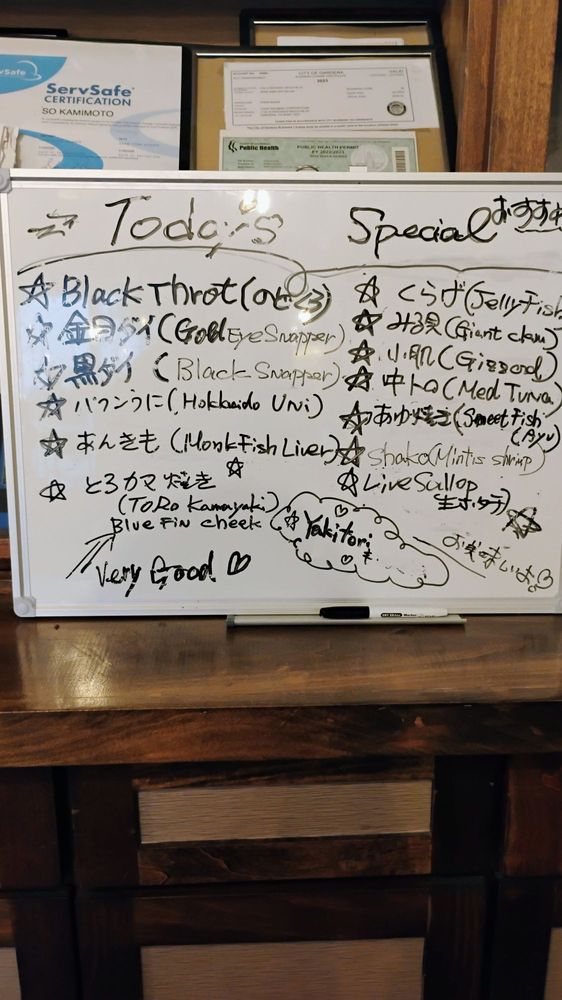 ServSafe
ServSafe®
CERTIFICATION
SO KAMIMOTO
CITY OF GARDENA
2023
Public Health
PUBLIC HEALTH PERMIT
Today's Special おすすめ
☆ Black Throt (のどぐろ)
☆ 金目ダイ (Gold Eye Snapper)
☆ 黒ダイ (Black Snapper)
☆ バフンうに (Hokkaido Uni)
☆ あんきも (Monk Fish Liver)
☆ とろカマ焼き ☆
(Toro Kamayaki)
Blue Fin cheek
Very Good ♡
☆ くらげ (Jelly Fish
☆ みる貝 (Giant clam)
☆ 小肌 (Gizzard)
☆ 中トロ (Med Tuna)
☆ あゆ焼き (Sweet Fish
(Ayu)
☆ Shako (Mintis shrimp)
☆ Live Scllop
生ホタテ) ☆
☆ Yakitori